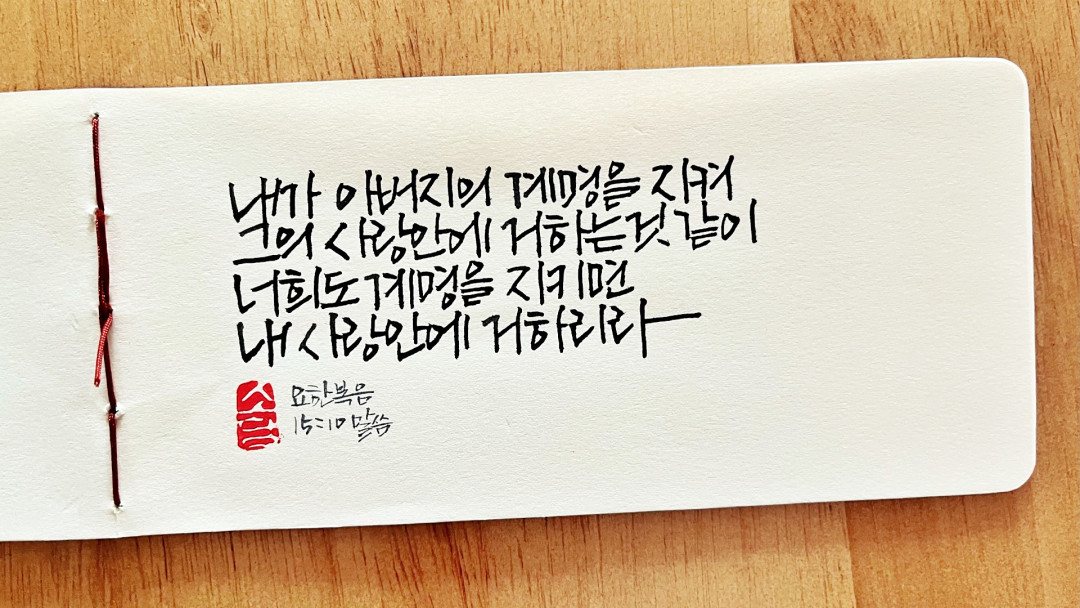 내가 아버지의 계명을 지켜
그의 사랑안에 거하는것 같이
너희도 계명을 지키면
내 사랑안에 거하리라
요한복음
15:10 말씀